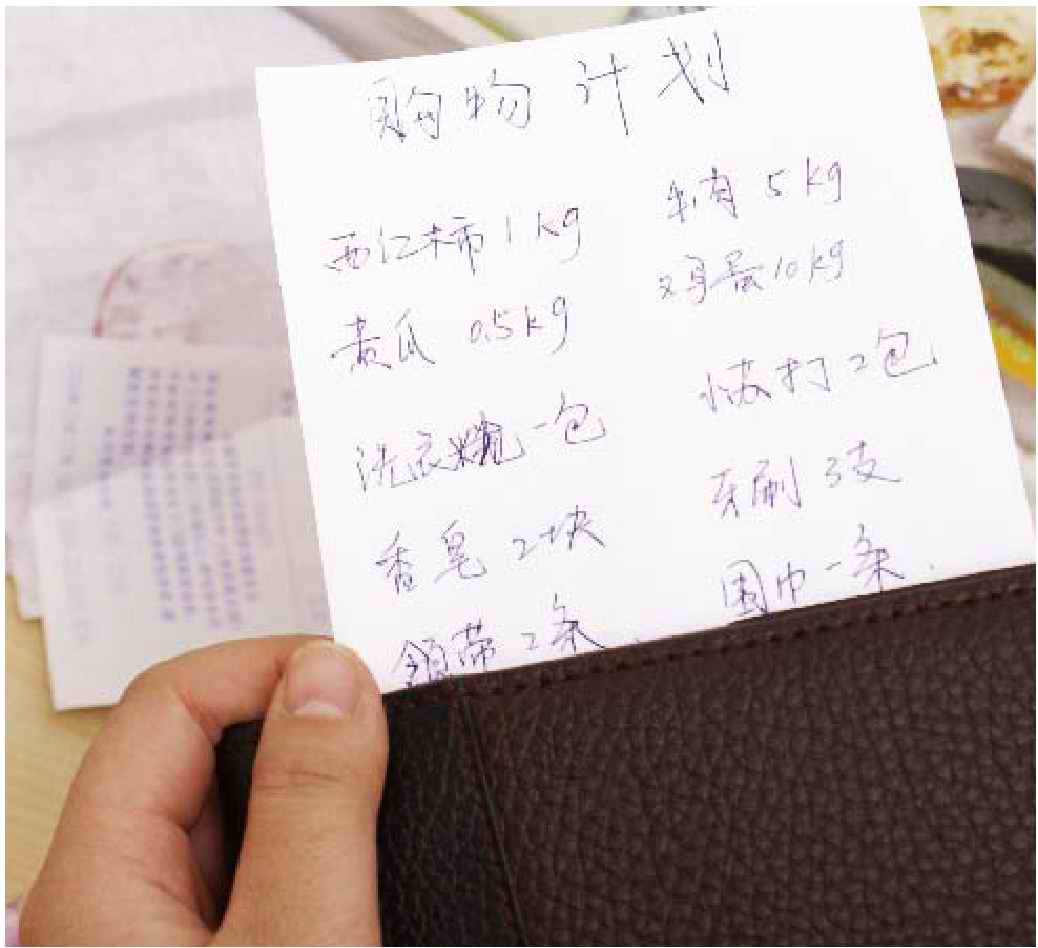 购物计划
西红柿 1kg
牛肉 5kg
黄瓜 0.5kg
鸡蛋 10kg
洗衣粉一包
小苏打 2包
香皂 2块
牙刷 3支
领带 2条
围巾一条.